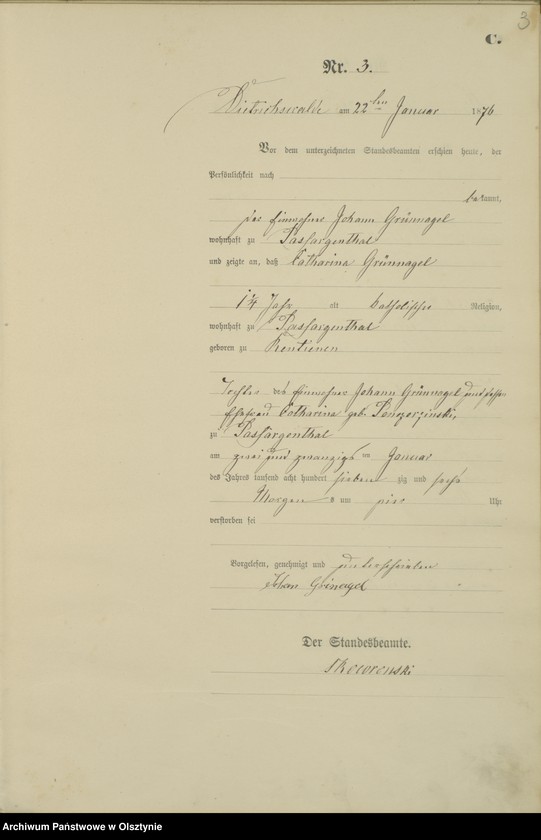 3
C.
Nr. 3.
Dietrichswalde am 22ten Januar 1876
Vor dem unterzeichneten Standesbeamten erschien heute, der
Persönlichkeit nach
bekannt,
der Einwohner Johann Grünnagel
wohnhaft zu Passargenthal
und zeigte an, daß Catharina Grünnagel
Jahr alt katholischer Religion,
wohnhaft zu Passargenthal
geboren zu Rentienen
Tochter des Einwohner Johann Grünnagel und dessen
Ehefrau Catharina geb.
zu Passargenthal
am zwei und zwanzigsten Januar
des Jahres tausend acht hundert sieben zig und sechs
Morgens um vier Uhr
verstorben sei
Vorgelesen, genehmigt und unterschrieben
Johan Grinagel
Der Standesbeamte.
Skeworenski
Archiwum Państwowe w Olsztynie